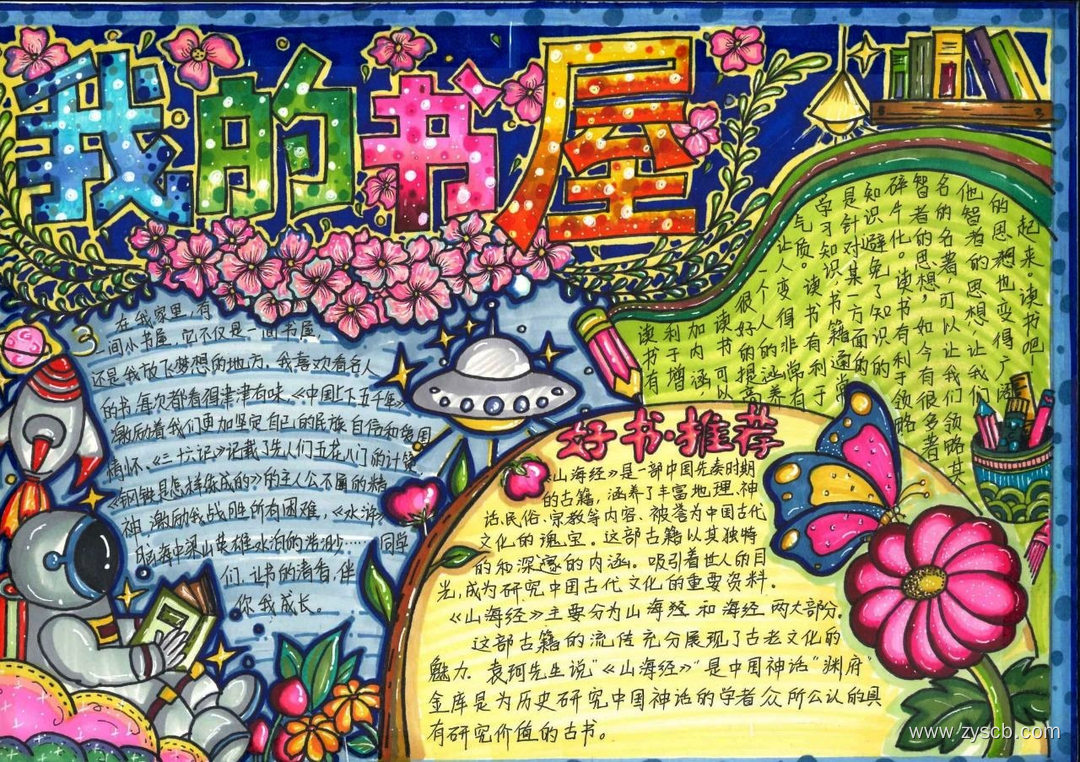 我的书屋
在我家里,有
一间小书屋,它不仅是一间书屋
还是我放飞梦想的地方,我喜欢看名人
的书,每次都看得津津有味、《中国上下五千年》
激励着我们更加坚定自己的民族自信和爱国
情怀、《三十六记》记载了先人们五花八门的计策
《钢铁是怎样练成的》的主人公不屈的精
神 激励我战胜所有困难,《水浒》
脑海中梁山英雄水泊的浩渺……同学
们,让书的清香,伴
你我成长。
读书有
利于增
加内涵
读书可以
很好的提高
一个人的涵养
让人变得非常有
气质。读书有利于
学习知识,读书籍通常
是针对某一方面的
知识 避免了知识的
碎 化。读书有利于领略
智者的思想,如今有很多
名者的名著,可以让我们领略其
他智者的思想,让我们
的思想也变得了活
起来。读书吧
好书·推荐
《山海经》是一部中国先秦时期
的古籍,涵养了丰富地理、神
话、民俗、宗教等内容、被誉为中国古代
文化的瑰宝。这部古籍以其独特
的和深邃的内涵。吸引着世人的目
光,成为研究中国古代文化的重要资料.
《山海经》主要分为山海经 和海经 两大部分.
这部古籍的流传充分展现了古老文化的
魅力.袁珂先生说"《山海经》"是中国神话"渊府"
金库是为历史研究中国神话的学者众所公认的具
有研究价值的古书。
www.zyscb.com